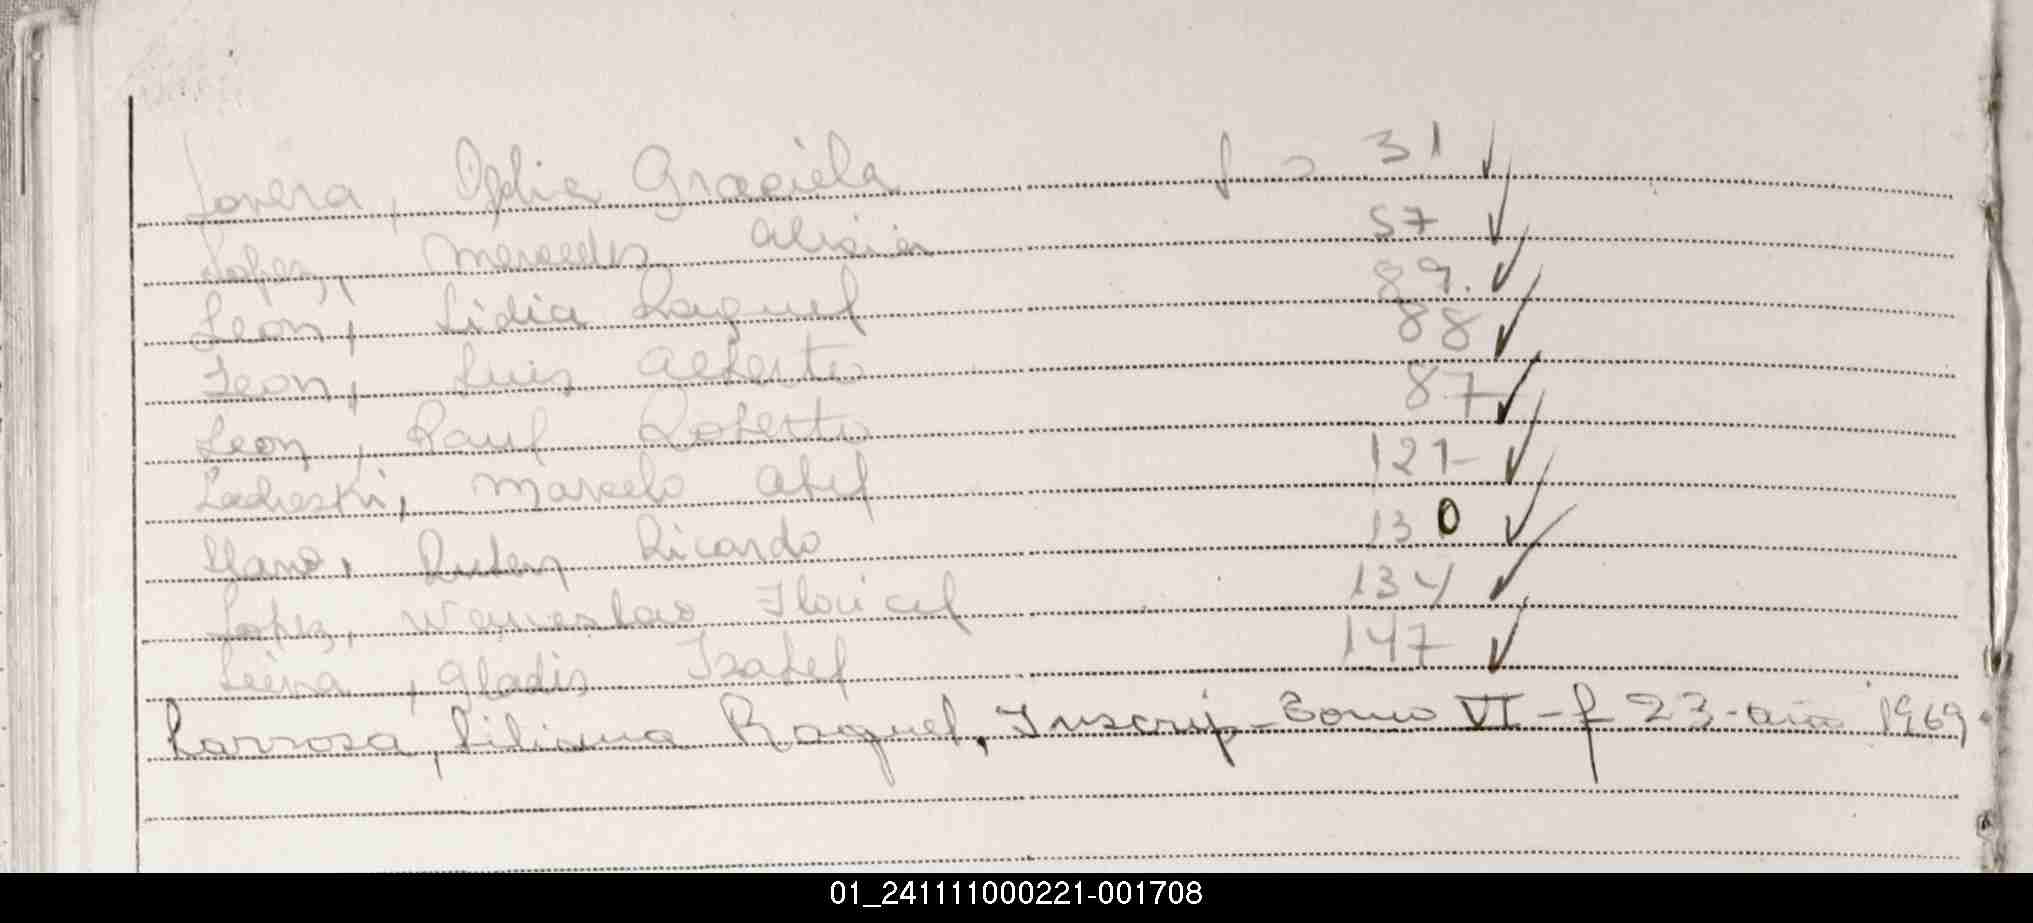 Lovera, Ofelia Graciela f = 31
Lopez, Mercedes Alicia 57
Leon, Lidia Raquel 89.
Leon, Luis Alberto 88
Leon, Raul Roberto 87
Ladheski, Marcelo Abel 121
Llano, Ruben Ricardo 130
Lopez, Wenceslao Floricel 134
Leiva, Gladis Isabel 147
Larrosa, Liliana Raquel, Inscrip-Tomo VI-f 23-año 1969
01_241111000221-001708